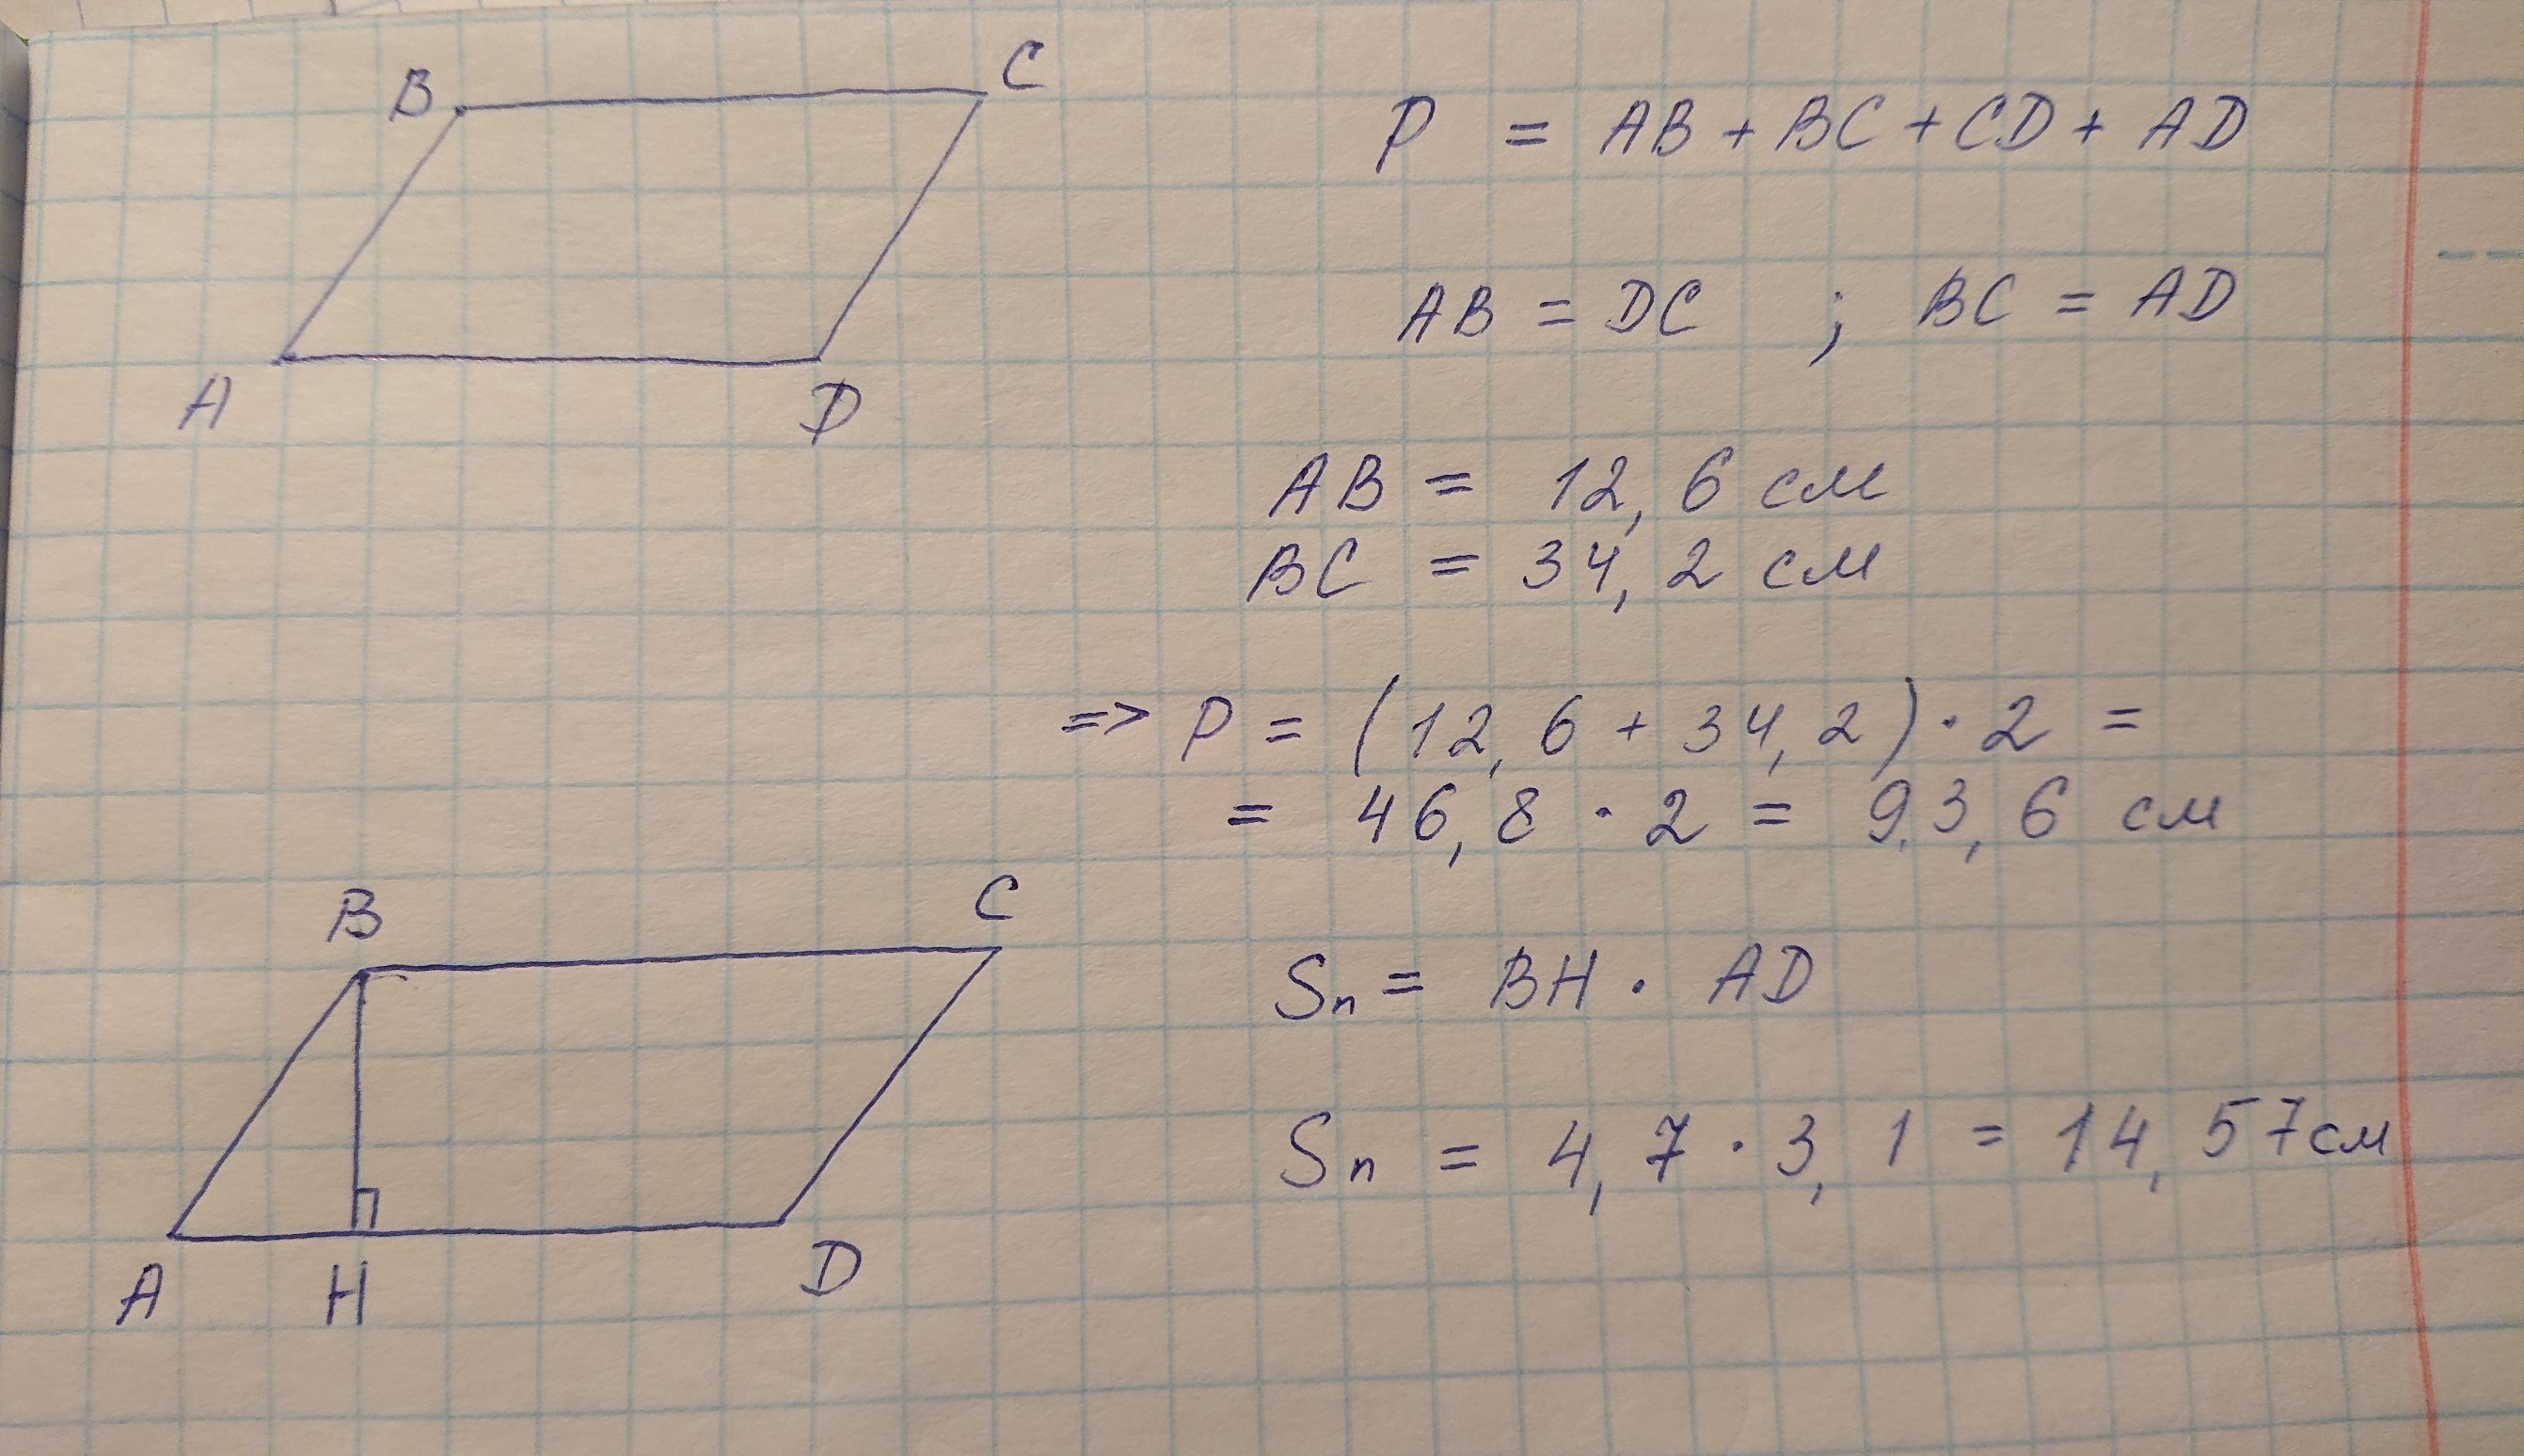 B C
P = AB + BC + CD + AD
AB = DC ; BC = AD
A D
AB = 12,6 см
BC = 34,2 см
=> P = (12,6 + 34,2) · 2 =
= 46,8 · 2 = 93,6 см
B C
Sп = BH · AD
Sп = 4,7 · 3,1 = 14,57 см
A H D